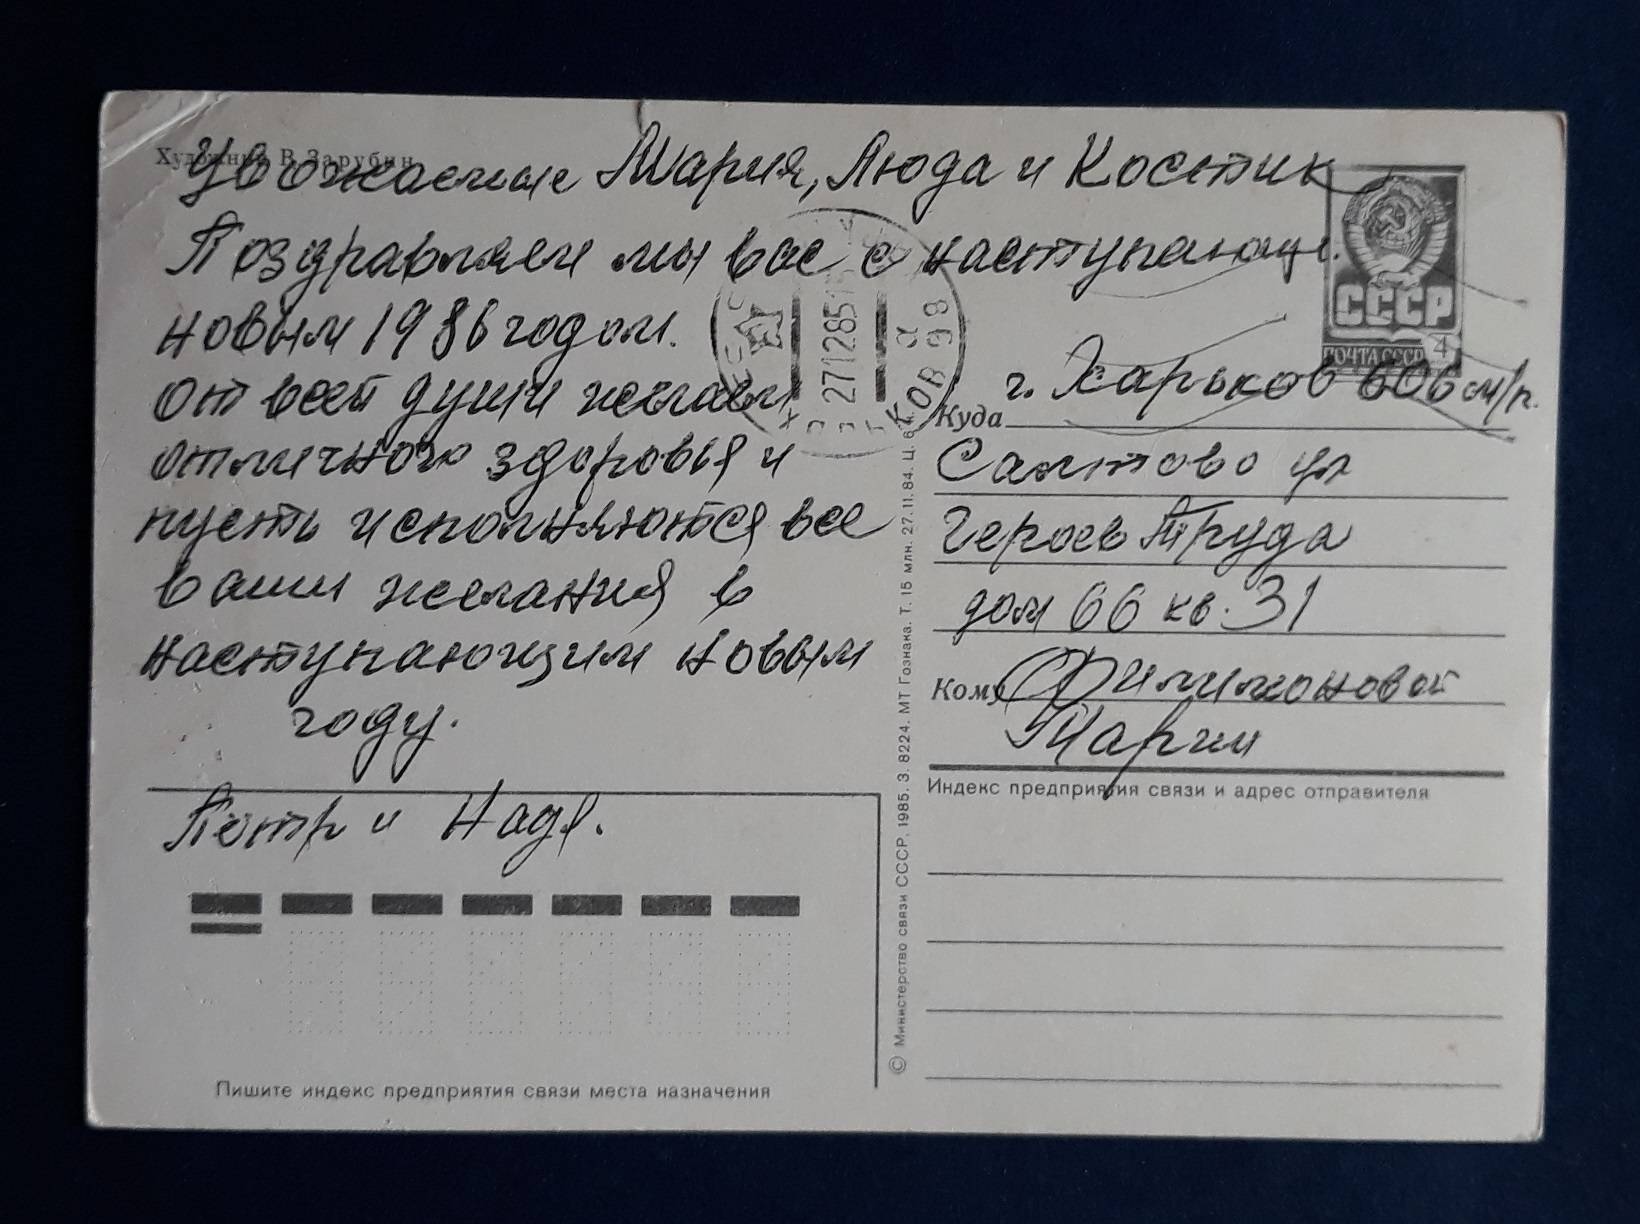 Художник В. Зарубин
Уважаемые Мария, Люда и Костик
Поздравляем мы вас с наступающ.
новым 1986 годом.
от всей души желаем
отличного здоровья и
пусть исполняются все
ваши желания в
наступающим новым
году.
Пётр и Надя.
Пишите индекс предприятия связи места назначения
© Министерство связи СССР, 1985. З. 8224. МТ Гознака. Т. 15 млн. 27.11.84. Ц. 6 к.
271285
ХАРЬКОВ 98
СССР
ПОЧТА СССР 4
Куда г. Харьков 606 м/р.
Салтово ул
Героев Труда
дом 66 кв. 31
Кому Филимоновой
Марии
Индекс предприятия связи и адрес отправителя